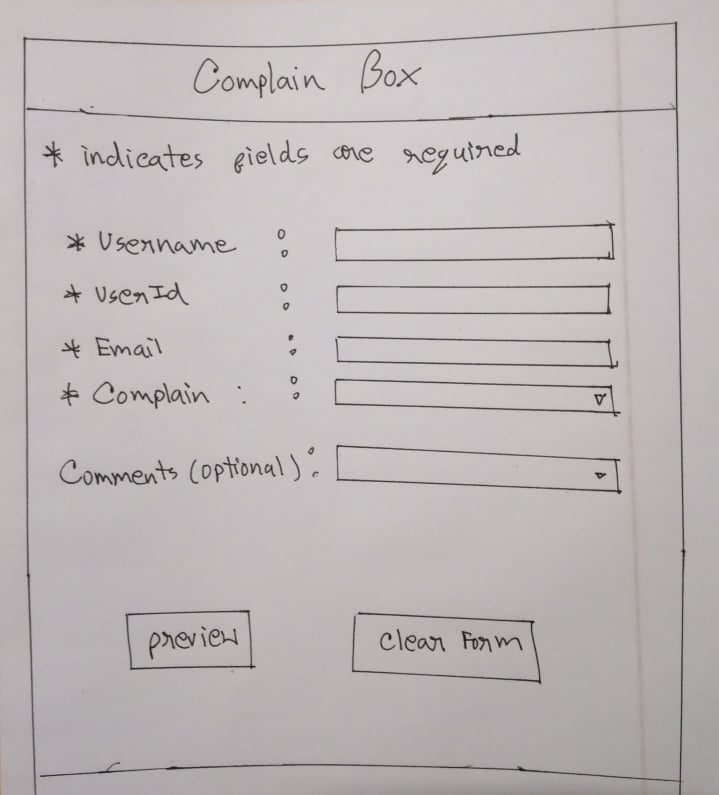 Complain Box
* indicates fields are required
* Username :
* UserId :
* Email :
* Complain : :
Comments (optional) :
preview
Clear Form